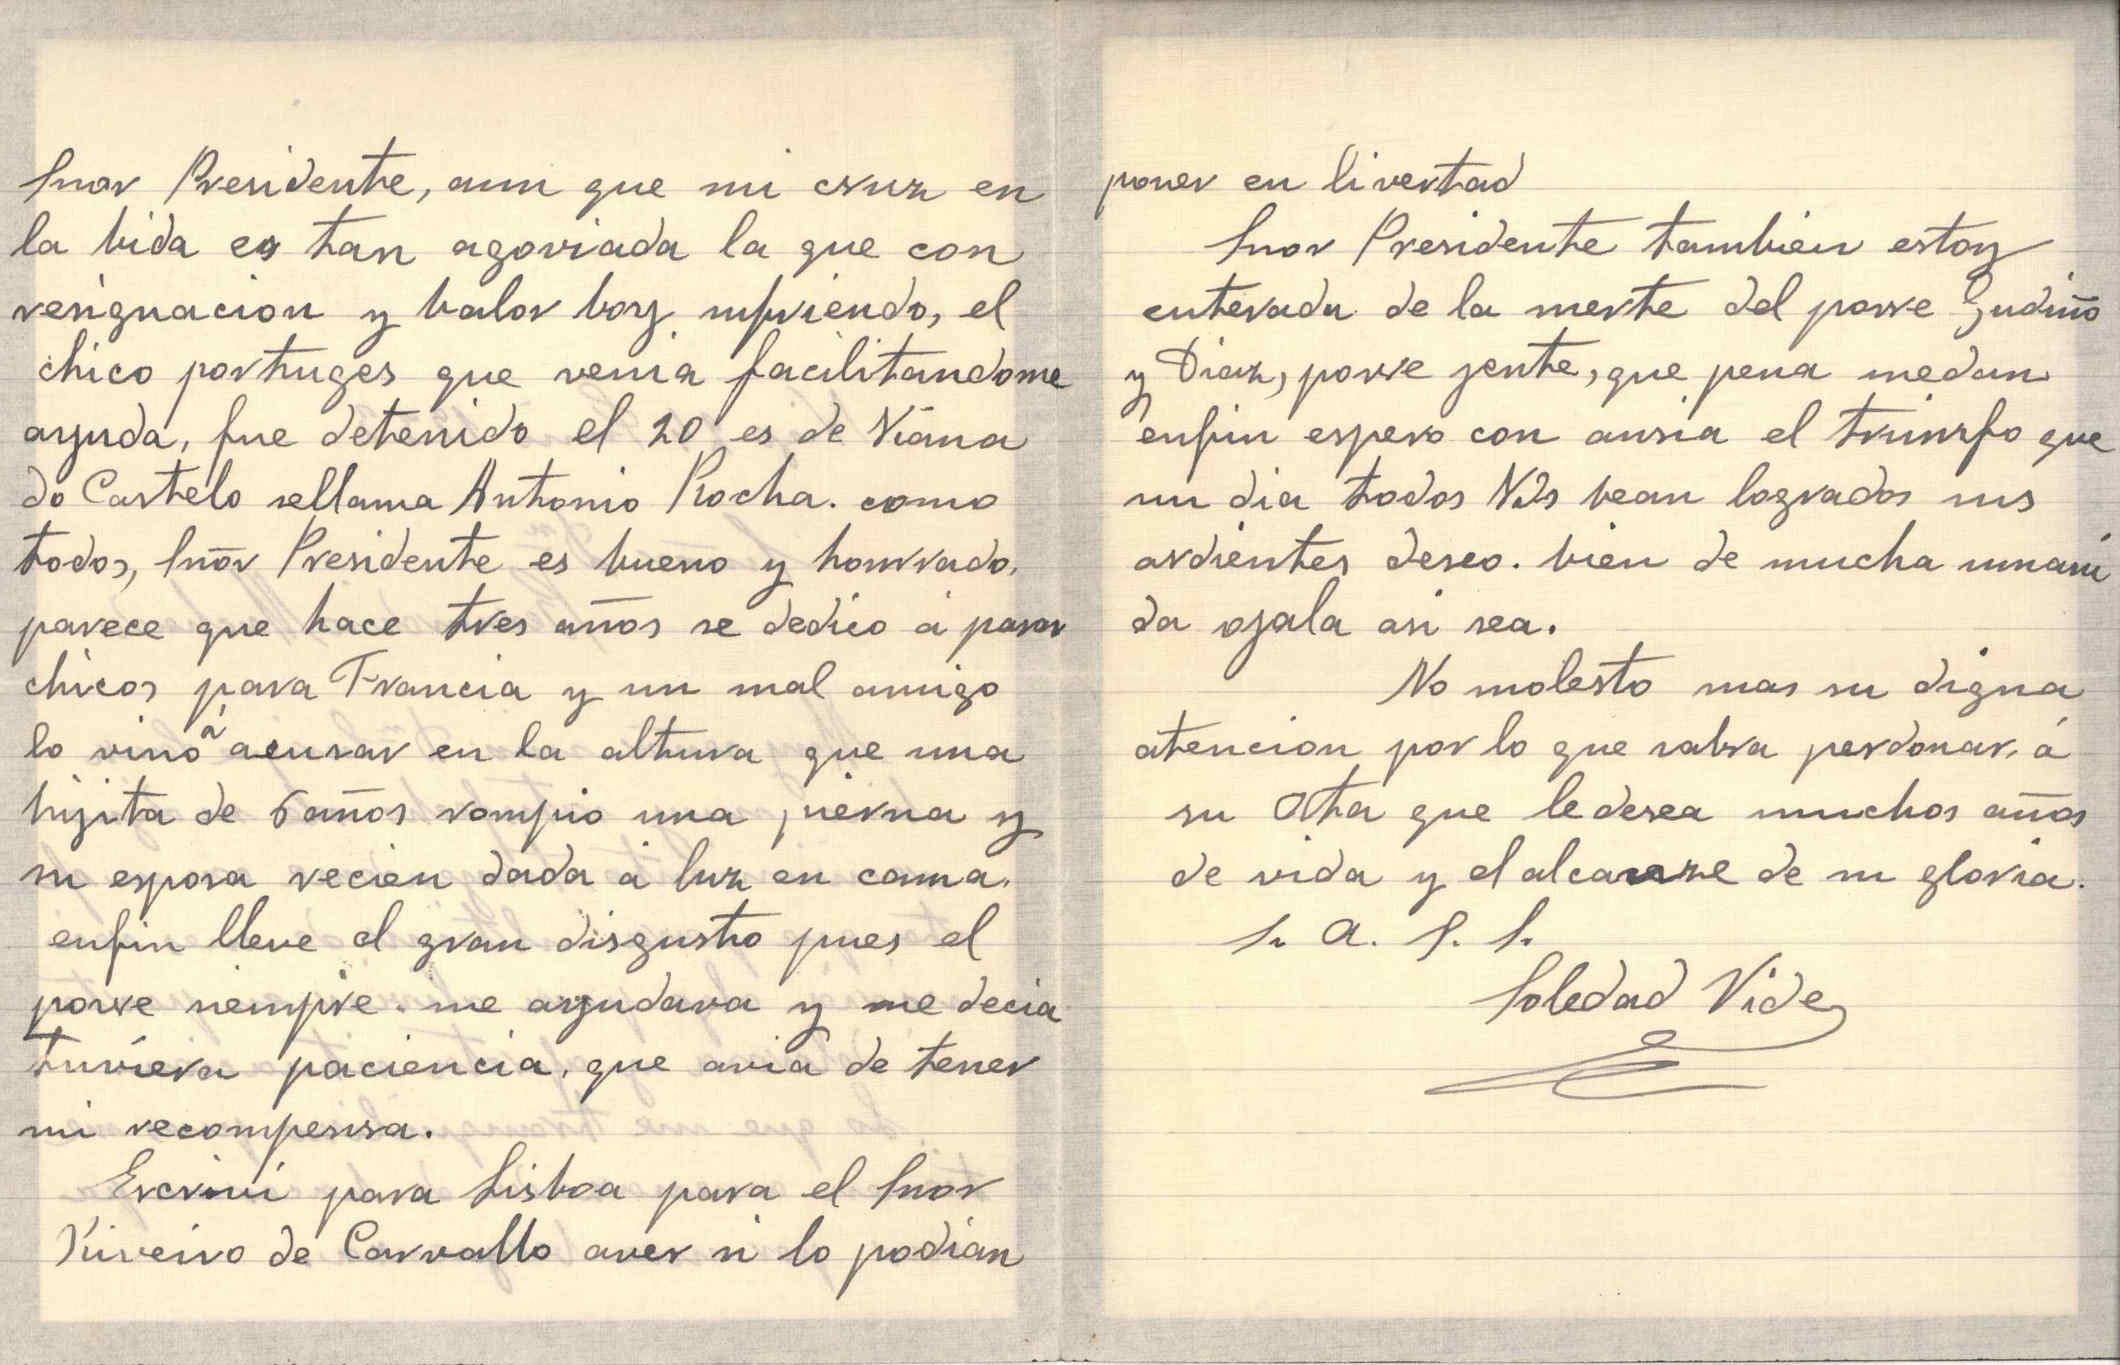 Snor Presidente, aun que mi cruz en
la bida es tan agoviada la que con
resignacion y balor boy sufriendo, el
chico portuges que venia facilitandome
ayuda, fue detenido el 20 es de Viana
do Castelo sellama Antonio Rocha. como
todos, Snōr Presidente es bueno y honrrado,
parece que hace tres años se dedico á pasar
chicos para Francia y un mal amigo
lo vino á acusar en la altura que una
hijita de 6 años rompio una pierna y
su esposa recien dada á luz en cama.
enfin lleve el gran disgusto pues el
povre siempre me ayudava y me decia
tuviera paciencia, que avia de tener
mi recompensa.
Escriví para Lisboa para el Snor
Riveiro de Carvallo aver si lo podian
poner en livertad
Snor Presidente tambien estoy
enterada de la merte del povre Gudiño
y Diaz, povre jente, que pena medan
enfin espero con ansia el triunfo que
un dia todos Vds bean logrados sus
ardientes deseo. bien de mucha umani
da ojala asi sea.
No molesto mas su digna
atencion por lo que sabra perdonar, á
su Atta que le desea muchos años
de vida y el alcanze de su gloria.
S. A. S. S.
Soledad Vide